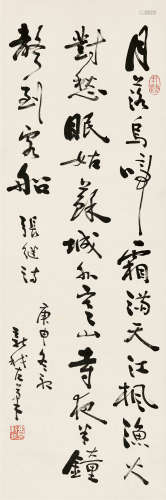 月落烏啼霜滿天江楓漁火
對愁眠姑蘇城外寒山寺夜半鐘
聲到客船
張继詩
庚申冬初